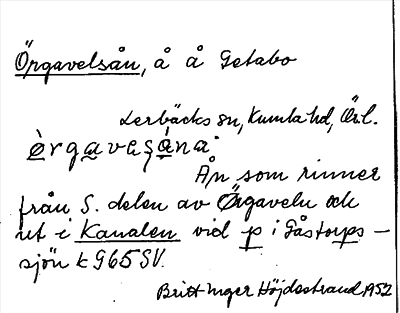 Örgavelsån, å å Getabo
Lerbäcks sn, Kumla hd, Ör.l.
ø̀rgavaşána
Ån som rinner
från S. delen av Örgaveln och
ut i Kanalen vid p i Gåstorps-
sjön k G65 SV.
Britt-Inger Höjdestrand, 1952